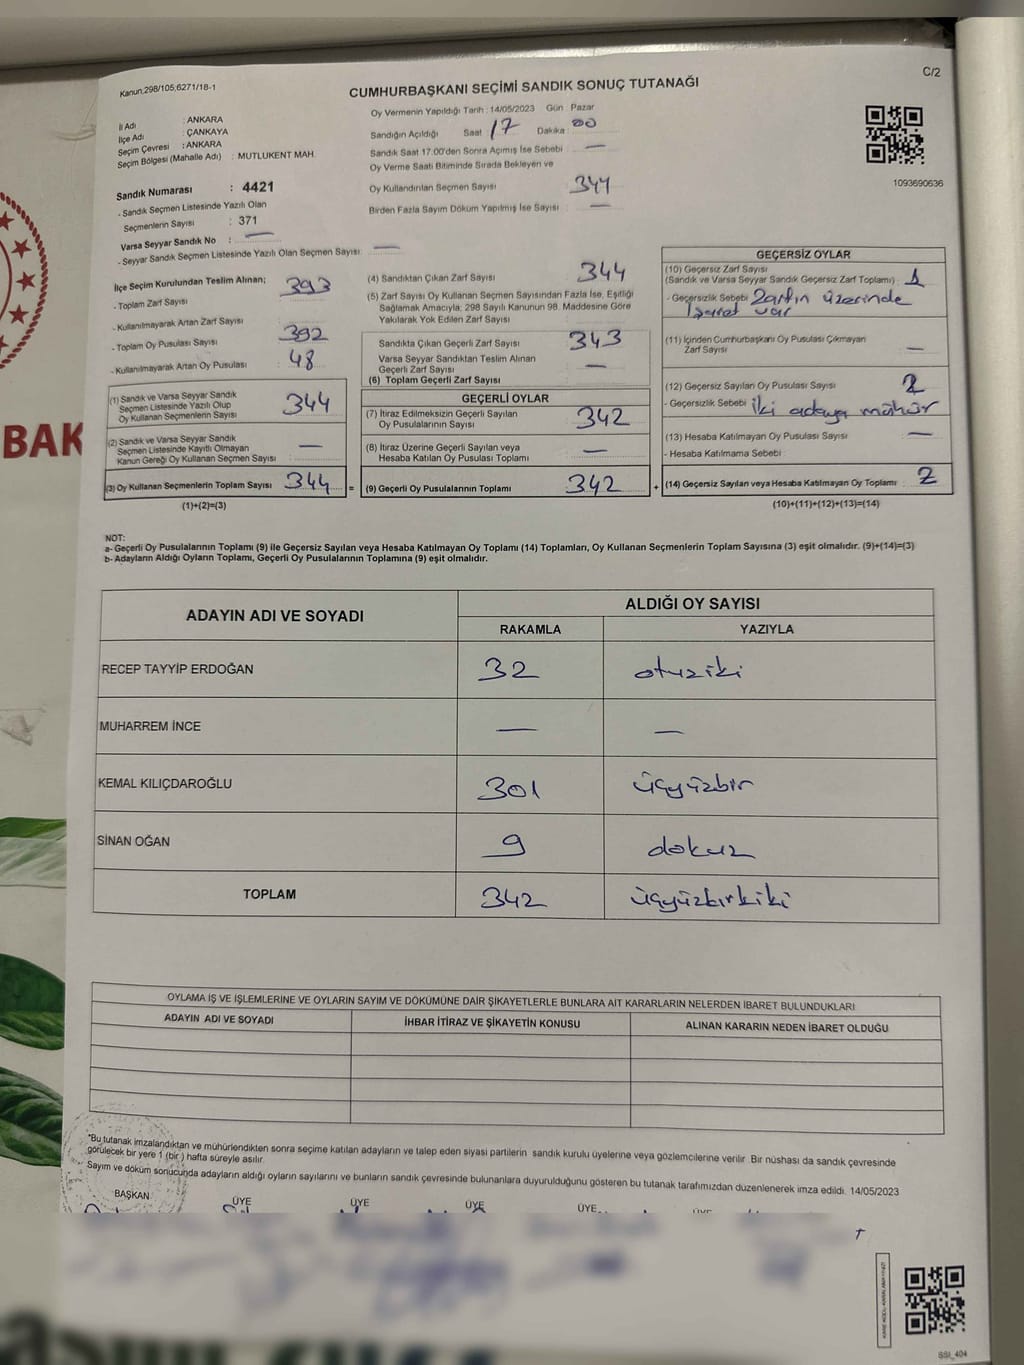 C/2
Kanun,298/105,6271/18-1
CUMHURBAŞKANI SEÇİMİ SANDIK SONUÇ TUTANAĞI
İl Adı : ANKARA
İlçe Adı : ÇANKAYA
Seçim Çevresi : ANKARA
Seçim Bölgesi (Mahalle Adı) : MUTLUKENT MAH.
Sandık Numarası : 4421
- Sandık Seçmen Listesinde Yazılı Olan
Seçmenlerin Sayısı : 371
Varsa Seyyar Sandık No : —
- Seyyar Sandık Seçmen Listesinde Yazılı Olan Seçmen Sayısı: —
Oy Vermenin Yapıldığı Tarih : 14/05/2023 Gün : Pazar
Sandığın Açıldığı Saat 17 Dakika 00
Sandık Saat 17.00'den Sonra Açımış İse Sebebi —
Oy Verme Saati Bitiminde Sırada Bekleyen ve
Oy Kullandırılan Seçmen Sayısı 344
Birden Fazla Sayım Döküm Yapılmış İse Sayısı —
1093690636
İlçe Seçim Kurulundan Teslim Alınan;
- Toplam Zarf Sayısı 393
- Kullanılmayarak Artan Zarf Sayısı
- Toplam Oy Pusulası Sayısı 392
- Kullanılmayarak Artan Oy Pusulası 48
(1) Sandık ve Varsa Seyyar Sandık
Seçmen Listesinde Yazılı Olup
Oy Kullanan Seçmenlerin Sayısı 344
(2) Sandık ve Varsa Seyyar Sandık
Seçmen Listesinde Kayıtlı Olmayan
Kanun Gereği Oy Kullanan Seçmen Sayısı —
(3) Oy Kullanan Seçmenlerin Toplam Sayısı 344 =
(1)+(2)=(3)
(4) Sandıktan Çıkan Zarf Sayısı 344
(5) Zarf Sayısı Oy Kullanan Seçmen Sayısından Fazla İse, Eşitliği
Sağlamak Amacıyla, 298 Sayılı Kanunun 98. Maddesine Göre
Yakılarak Yok Edilen Zarf Sayısı
Sandıkta Çıkan Geçerli Zarf Sayısı 343
Varsa Seyyar Sandıktan Teslim Alınan
Geçerli Zarf Sayısı —
(6) Toplam Geçerli Zarf Sayısı
GEÇERLİ OYLAR
(7) İtiraz Edilmeksizin Geçerli Sayılan
Oy Pusulalarının Sayısı 342
(8) İtiraz Üzerine Geçerli Sayılan veya
Hesaba Katılan Oy Pusulası Toplamı —
(9) Geçerli Oy Pusulalarının Toplamı 342 +
GEÇERSİZ OYLAR
(10) Geçersiz Zarf Sayısı
(Sandık ve Varsa Seyyar Sandık Geçersiz Zarf Toplamı) : 1
- Geçersizlik Sebebi Zarfın üzerinde
işaret var
(11) İçinden Cumhurbaşkanı Oy Pusulası Çıkmayan
Zarf Sayısı —
(12) Geçersiz Sayılan Oy Pusulası Sayısı
- Geçersizlik Sebebi iki adaya mühür
(13) Hesaba Katılmayan Oy Pusulası Sayısı —
- Hesaba Katılmama Sebebi
(14) Geçersiz Sayılan veya Hesaba Katılmayan Oy Toplamı : 2
(10)+(11)+(12)+(13)=(14)
NOT:
a- Geçerli Oy Pusulalarının Toplamı (9) ile Geçersiz Sayılan veya Hesaba Katılmayan Oy Toplamı (14) Toplamları, Oy Kullanan Seçmenlerin Toplam Sayısına (3) eşit olmalıdır. (9)+(14)=(3)
b- Adayların Aldığı Oyların Toplamı, Geçerli Oy Pusulalarının Toplamına (9) eşit olmalıdır.
ADAYIN ADI VE SOYADI ALDIĞI OY SAYISI
RAKAMLA YAZIYLA
RECEP TAYYİP ERDOĞAN 32 otuziki
MUHARREM İNCE — —
KEMAL KILIÇDAROĞLU 301 üçyüzbir
SİNAN OĞAN 9 dokuz
TOPLAM 342 üçyüzkırkiki
OYLAMA İŞ VE İŞLEMLERİNE VE OYLARIN SAYIM VE DÖKÜMÜNE DAİR ŞİKAYETLERLE BUNLARA AİT KARARLARIN NELERDEN İBARET BULUNDUKLARI
ADAYIN ADI VE SOYADI İHBAR İTİRAZ VE ŞİKAYETİN KONUSU ALINAN KARARIN NEDEN İBARET OLDUĞU
*Bu tutanak imzalandıktan ve mühürlendikten sonra seçime katılan adayların ve talep eden siyasi partilerin sandık kurulu üyelerine veya gözlemcilerine verilir. Bir nüshası da sandık çevresinde
görülecek bir yere 1 (bir ) hafta süreyle asılır.
Sayım ve döküm sonucunda adayların aldığı oyların sayılarını ve bunların sandık çevresinde bulunanlara duyurulduğunu gösteren bu tutanak tarafımızdan düzenlenerek imza edildi. 14/05/2023
BAŞKAN ÜYE ÜYE ÜYE ÜYE ÜYE
BAK
SSI_404